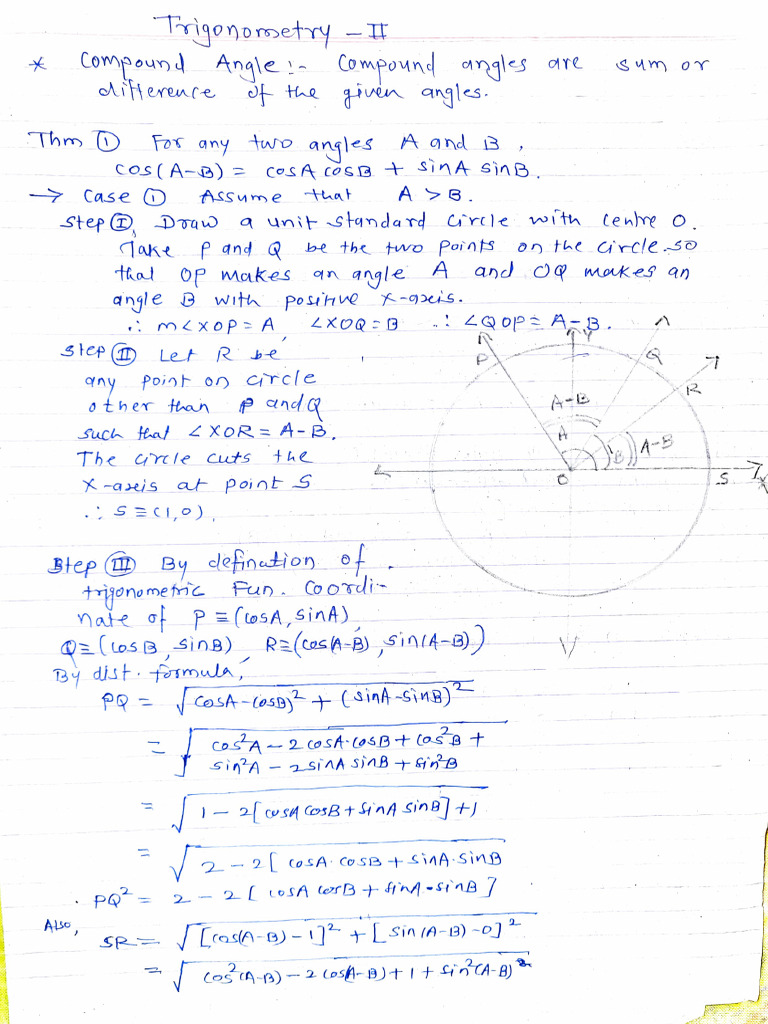 Trigonometry - II
* Compound Angle :- Compound angles are sum or
difference of the given angles.
Thm ① For any two angles A and B,
cos(A-B) = cosA cosB + sinA sinB.
→ Case ① Assume that A > B.
Step Ⓘ, Draw a unit standard circle with centre O.
Take P and Q be the two points on the circle. so
that OP makes an angle A and OQ makes an
angle B with positive X-axis.
∴ m∠XOP = A, ∠XOQ = B ∴ ∠QOP = A-B.
Step II Let R be
any point on circle
other than P and Q
such that ∠XOR = A-B.
The circle cuts the
X-axis at point S
∴ S ≡ (1,0).
P
Y
Q
R
A-B
A
B
A-B
O
S
X
Step III By defination of
trigonometric Fun. Coordi-
nate of P ≡ (cosA, sinA),
Q ≡ (cosB, sinB), R ≡ (cos(A-B), sin(A-B))
By dist. formula,
PQ = √cosA-cosB)² + (sinA-sinB)²
= √cos²A - 2cosA·cosB + cos²B +
sin²A - 2sinA sinB + sin²B
= √1 - 2[cosA cosB + sinA sinB] + 1
= √2 - 2[cosA·cosB + sinA·sinB
. PQ² = 2 - 2[cosA cosB + sinA·sinB]
Also,
SR = √[cos(A-B) - 1]² + [sin(A-B) - 0]²
= √cos²(A-B) - 2cos(A-B) + 1 + sin²(A-B)